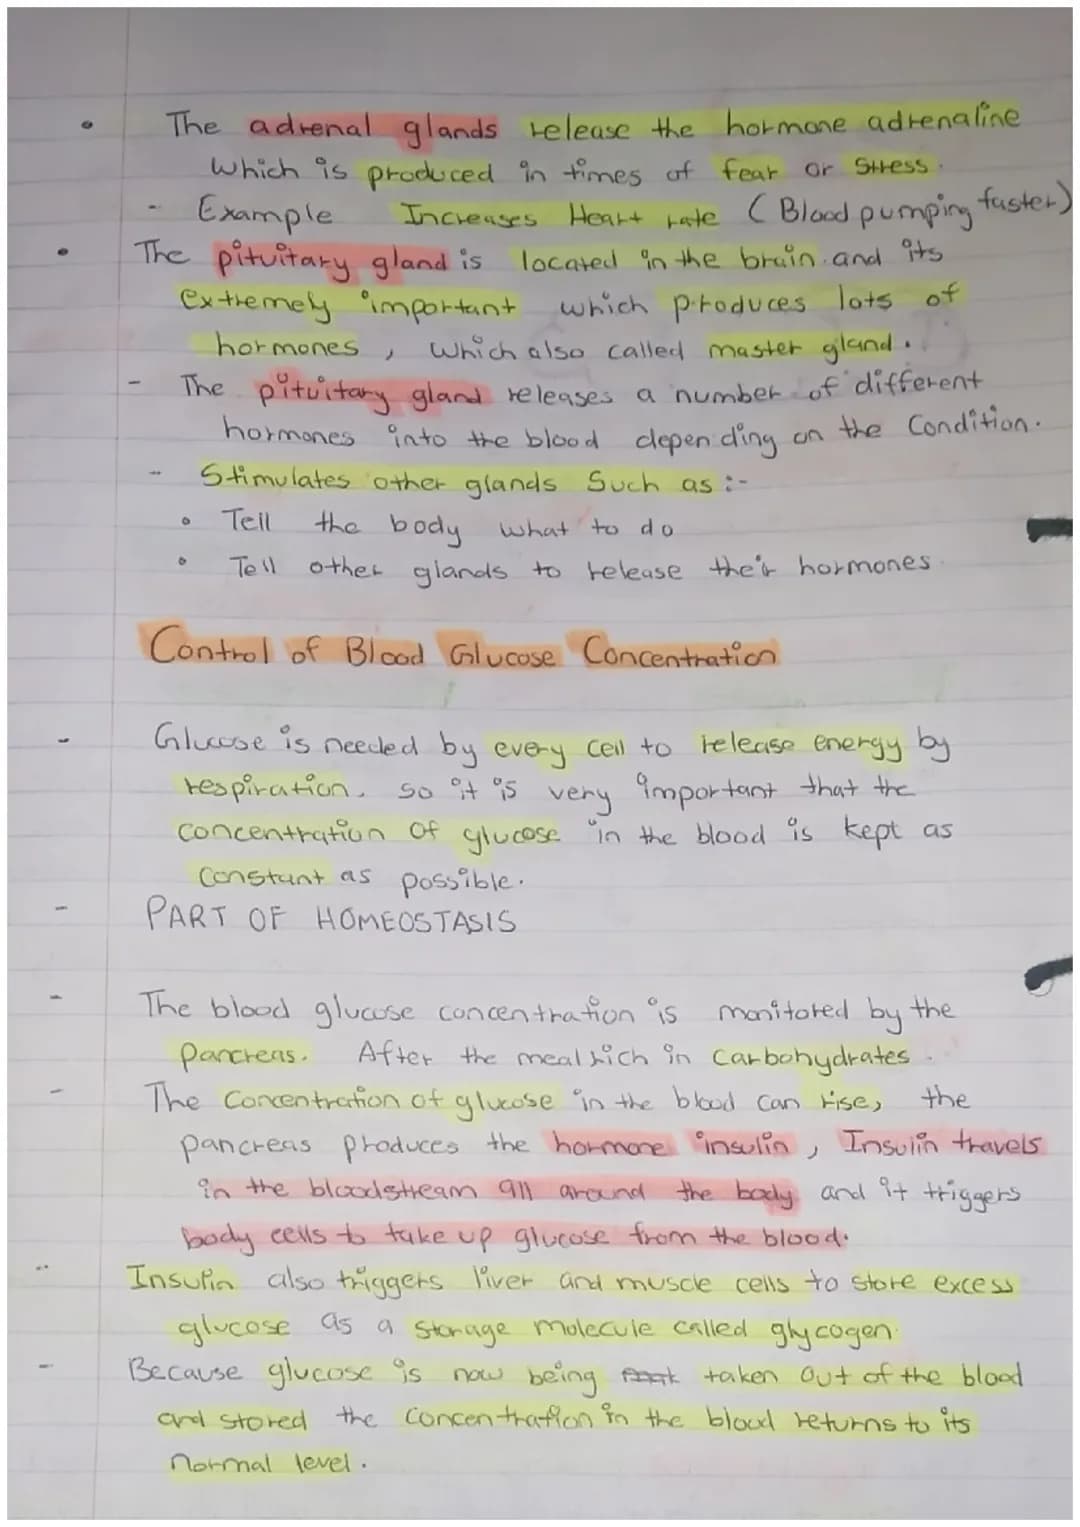 • The adrenal glands release the hormone adrenaline
which is produced in times of fear or stress.
- Example Increases Heart rate (Blood pumping faster)
• The pituitary gland is located in the brain and its
extremely important which produces lots of
hormones, which also called master gland.
- The pituitary gland releases a number of different
hormones into the blood depending on the condition.
- Stimulates other glands Such as :-
• Tell the body what to do
• Tell other glands to release their hormones.
Control of Blood Glucose Concentration
- Glucose is needed by every cell to release energy by
respiration. so it is very important that the
concentration of glucose in the blood is kept as
constant as possible.
- PART OF HOMEOSTASIS
- The blood glucose concentration is monitored by the
pancreas. After the meal rich in carbohydrates.
- The concentration of glucose in the blood can rise, the
pancreas produces the hormone insulin, Insulin travels
in the bloodstream all around the body and it triggers
body cells to take up glucose from the blood.
- Insulin also triggers liver and muscle cells to store excess
glucose as a storage molecule called glycogen.
- Because glucose is now being taken out of the blood
and stored the concentration in the blood returns to its
normal level.